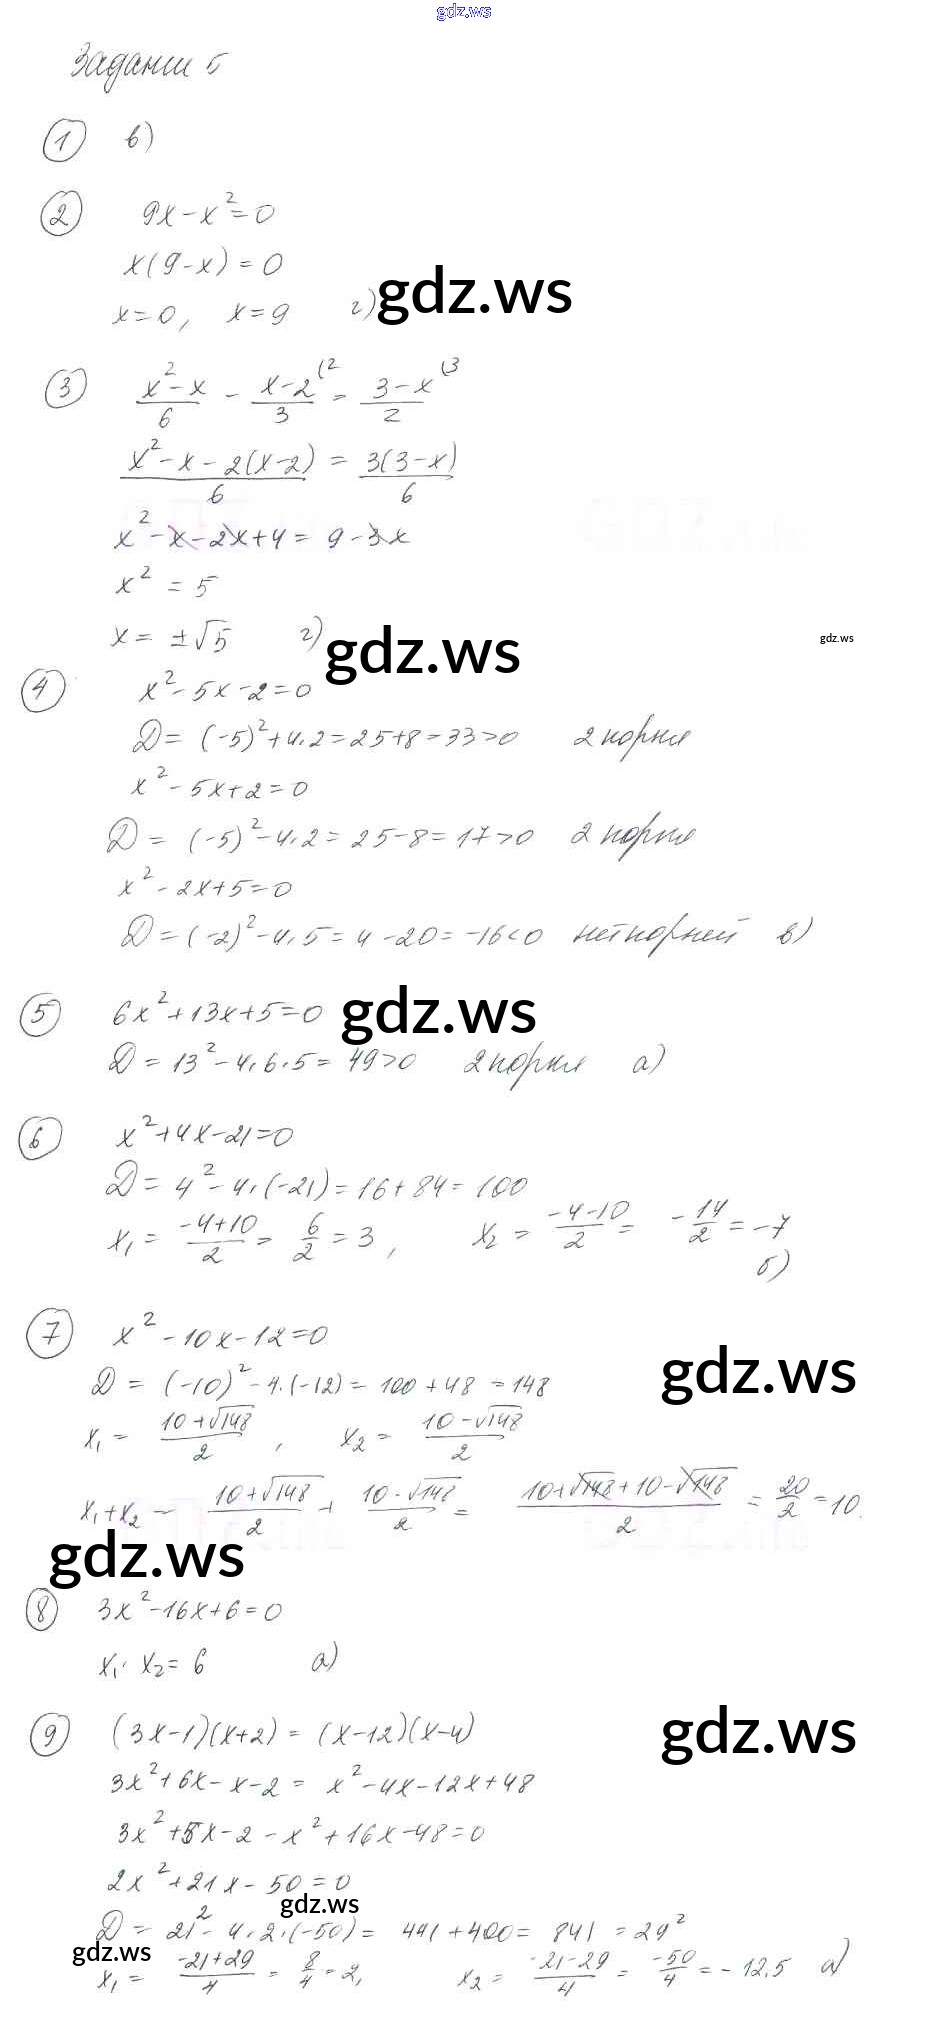 gdz.ws
Задание 5
1 в)
2 9x - x² = 0
x(9 - x) = 0
x = 0, x = 9 г)
gdz.ws
3 (x² - x)/6 - (x - 2)/3 (2 = (3 - x)/2 (3
(x² - x - 2(x - 2))/6 = 3(3 - x)/6
x² - x - 2x + 4 = 9 - 3x
x² = 5
x = ±√5 г)
gdz.ws
gdz.ws
4 x² - 5x - 2 = 0
D = (-5)² + 4·2 = 25 + 8 = 33 > 0 2 корня
x² - 5x + 2 = 0
D = (-5)² - 4·2 = 25 - 8 = 17 > 0 2 корня
x² - 2x + 5 = 0
D = (-2)² - 4·5 = 4 - 20 = -16 < 0 нет корней в)
gdz.ws
5 6x² + 13x + 5 = 0
D = 13² - 4·6·5 = 49 > 0 2 корня а)
6 x² + 4x - 21 = 0
D = 4² - 4·(-21) = 16 + 84 = 100
x₁ = (-4 + 10)/2 = 6/2 = 3, x₂ = (-4 - 10)/2 = -14/2 = -7
б)
7 x² - 10x - 12 = 0
gdz.ws
D = (-10)² - 4·(-12) = 100 + 48 = 148
x₁ = (10 + √148)/2, x₂ = (10 - √148)/2
x₁ + x₂ = (10 + √148)/2 + (10 - √148)/2 = (10 + √148 + 10 - √148)/2 = 20/2 = 10.
gdz.ws
8 3x² - 16x + 6 = 0
x₁·x₂ = 6 а)
9 (3x - 1)(x + 2) = (x - 12)(x - 4)
gdz.ws
3x² + 6x - x - 2 = x² - 4x - 12x + 48
3x² + 5x - 2 - x² + 16x - 48 = 0
2x² + 21x - 50 = 0
gdz.ws
D = 21² - 4·2·(-50) = 441 + 400 = 841 = 29²
gdz.ws
x₁ = (-21 + 29)/4 = 8/4 = 2, x₂ = (-21 - 29)/4 = -50/4 = -12,5 а)